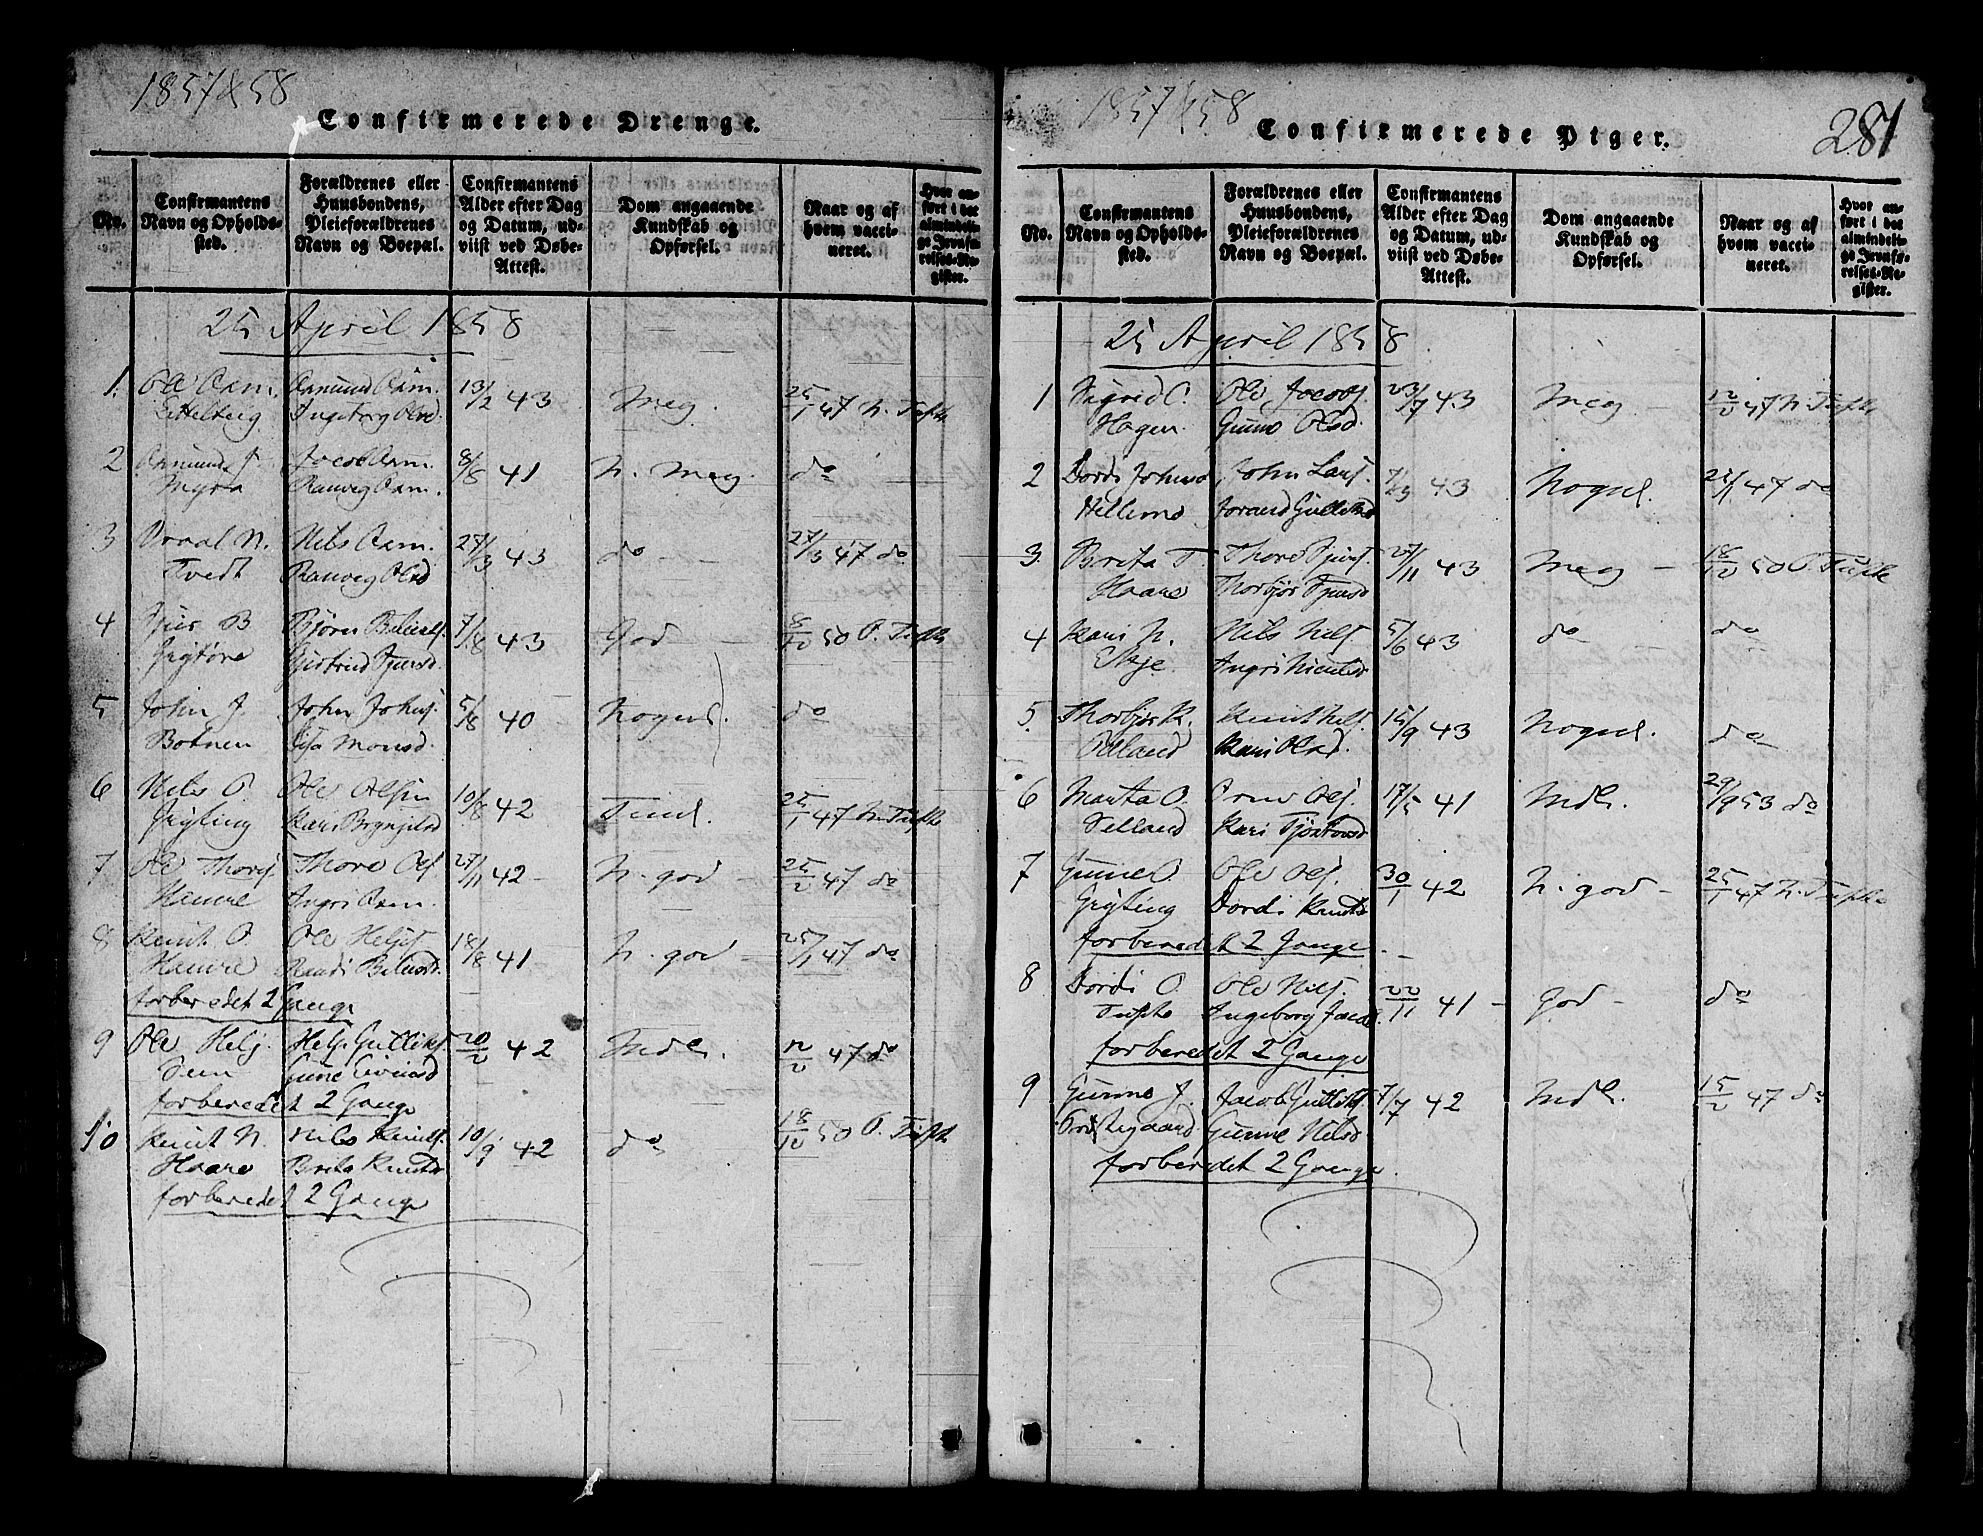 1857 & 58
Confirmerede Drenge.
No.
Confirmantens Navn og Opholdssted.
Forældrenes eller Huusbondens, Pleieforældrenes Navn og Boepæl.
Confirmantens Alder efter Dag og Datum, udviist ved Døbe-Attest.
Dom angaaende Kundskab og Opførsel.
Naar og af hvem vaccineret.
Hvor anført i det almindelige Jevnførelses-Register.
25 April 1858
1. Ole Asm. Asmund Asm. 13/2 43 Meg. 25/1 47 N. Tufte
Ingeborg Olsd.
2 Asmund J. Jacob Asm. 8/8 41 N. Meg. do
Myra Ranveg Asm.
3 Nils Asm. 27/3 43 do - 27/3 47 do
Tvedt Ranveg Olsd
4 B Bjørn 7/8 43 God - 8/10 50 P. Tufte
5 John J. John Johns. 5/8 40 Nogenl. do
Botnen Monsd.
6 Nils O. Ole 10/8 42 Timl. 25/1 47 N. Tufte
Kari
7 Ole Thors. Thore Ols. 27/11 42 - N. god - 25/2 47 do
Hamre Ingri Asm.
8 Knut O. Ole Heljes. 18/8 41 N. god - 25/1 47 do
Hamre Randi
forberedet 2 Gange
9 Ole Helj. Helje Gulliks. 20/2 42 Mdl. 12/2 47 do
Gunne
forberedet 2 Gange
10 Knut N. Nils Knuts. 10/9 42 do 18/10 50 P. Tufte
Haare Brita Knutsd
forberedet 2 Gange
1857 & 58
Confirmerede Piger.
281
No.
Confirmantens Navn og Opholdssted.
Forældrenes eller Huusbondens, Pleieforældrenes Navn og Boepæl.
Confirmantens Alder efter Dag og Datum, udviist ved Døbe-Attest.
Dom angaaende Kundskab og Opførsel.
Naar og af hvem vaccineret.
Hvor anført i det almindelige Jevnførelses-Register.
25 April 1858
1 Sigrid O. Ole Jacobs. 23/7 43 Meg - 12/2 47 N. Tufte
Hagen Olsd.
2 Dordi Johnsd John Lars. 7/23 43 Nogenl. 25/1 47 do
Hellemo
3. Brita T. Thore 27/11 43 Meg - 18/10 50 P. Tufte
Haare
4 Kari N. Nils Nels. 5/6 43 do do
Skje Ingri
5. Thorbjør K. Knut Nels. 15/9 43 Nogenl. do
Kari Olsd.
6 Marta O. Orm Ols. 17/5 41 Mdl. 29/9 53 do
Selland Kari
7 Gunne O. Ole Ols. 30/1 42 N. god - 25/1 47 N. Tufte
Dordi Knutsd
forberedet 2 Gange
8 Dordi O. Ole Nels. 22/11 41 - God - do
Tufte Ingeborg
forberedet 2 Gange
9 J. Jacob Gulliks. 7/7 42 Mdl. 15/2 47 do
Gunne Nelsd
forberedet 2 Gange.